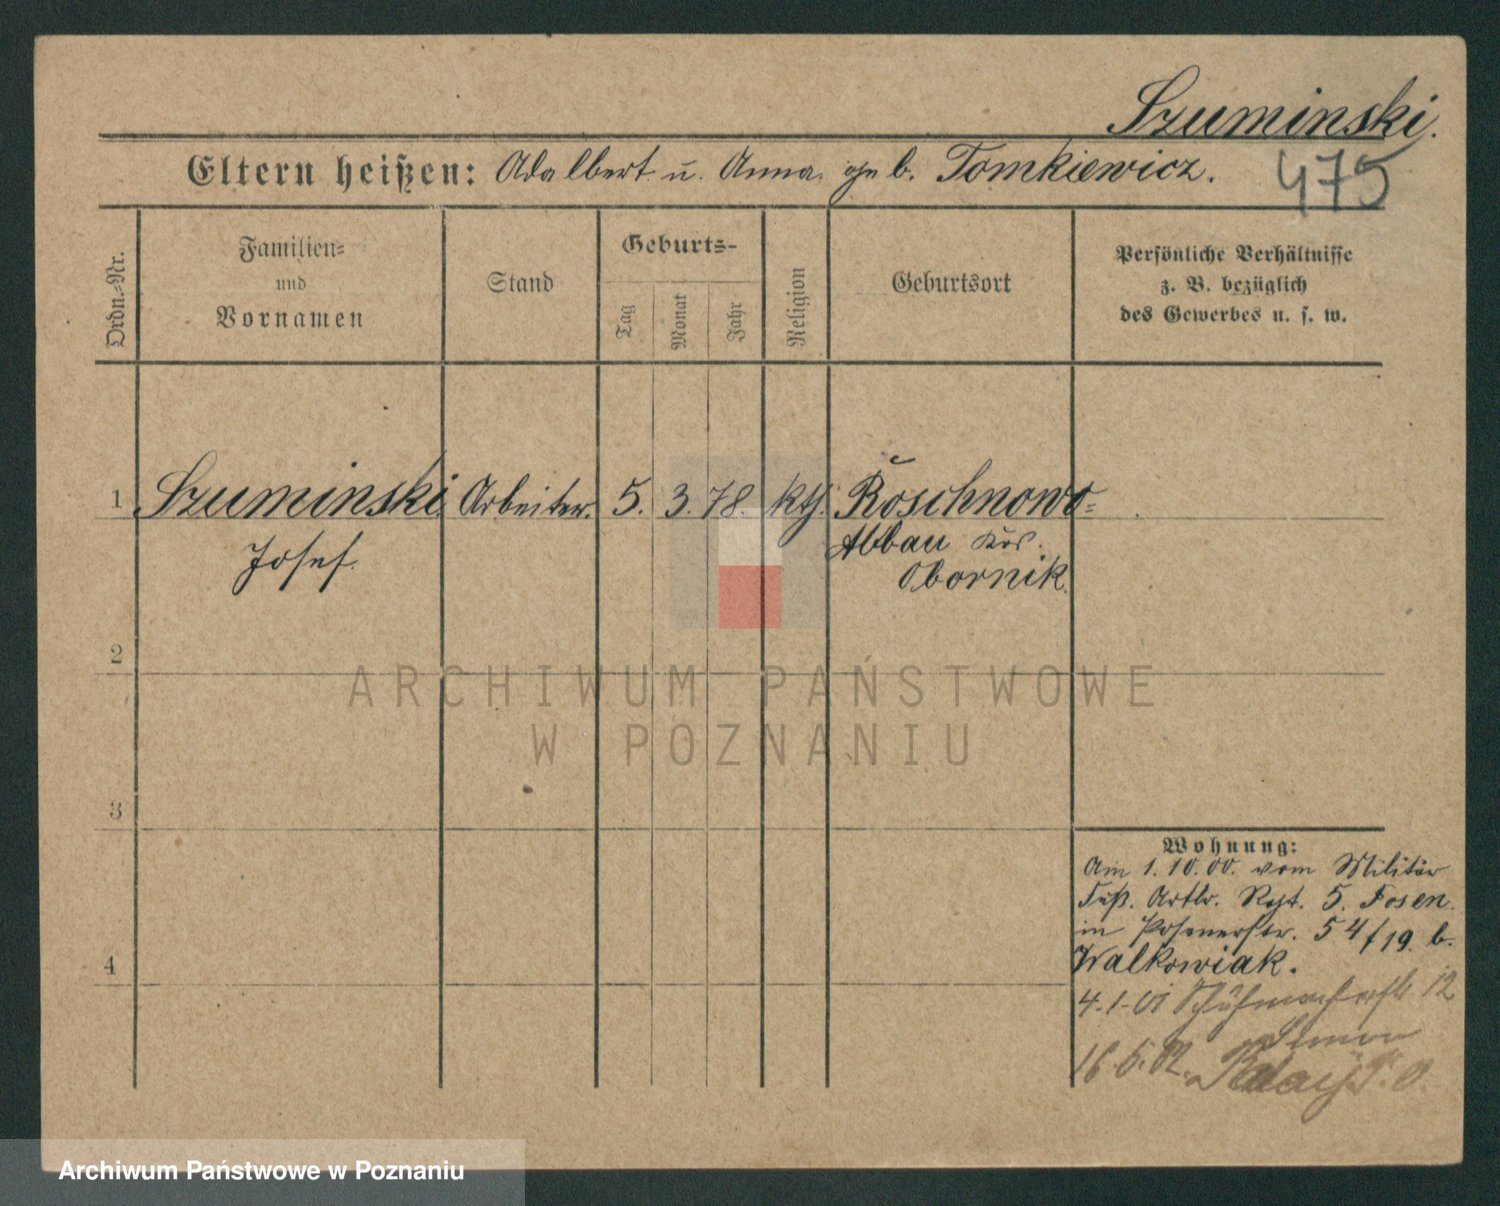 Szuminski.
Eltern heißen: Adalbert u. Anna geb. Tomkiewicz.
475
Ordn.-Nr.
Familien- und Vornamen
Stand
Geburts-
Tag
Monat
Jahr
Religion
Geburtsort
Persönliche Verhältnisse
z. B. bezüglich
des Gewerbes u. s. w.
1 Szuminski Arbeiter. 5. 3. 78. kth. Roschnowo-
Josef. Abbau Krs.
Obornik.
2
3
4
Wohnung:
Am 1.10.00. vom Militär
Fuß. Artlr. Rgt. 5. Posen.
in Posenerstr. 54/19. b.
Walkowiak.
4.1.01 Schuhmacherstr. 12
16.5.02.
ARCHIWUM PAŃSTWOWE
W POZNANIU
Archiwum Państwowe w Poznaniu